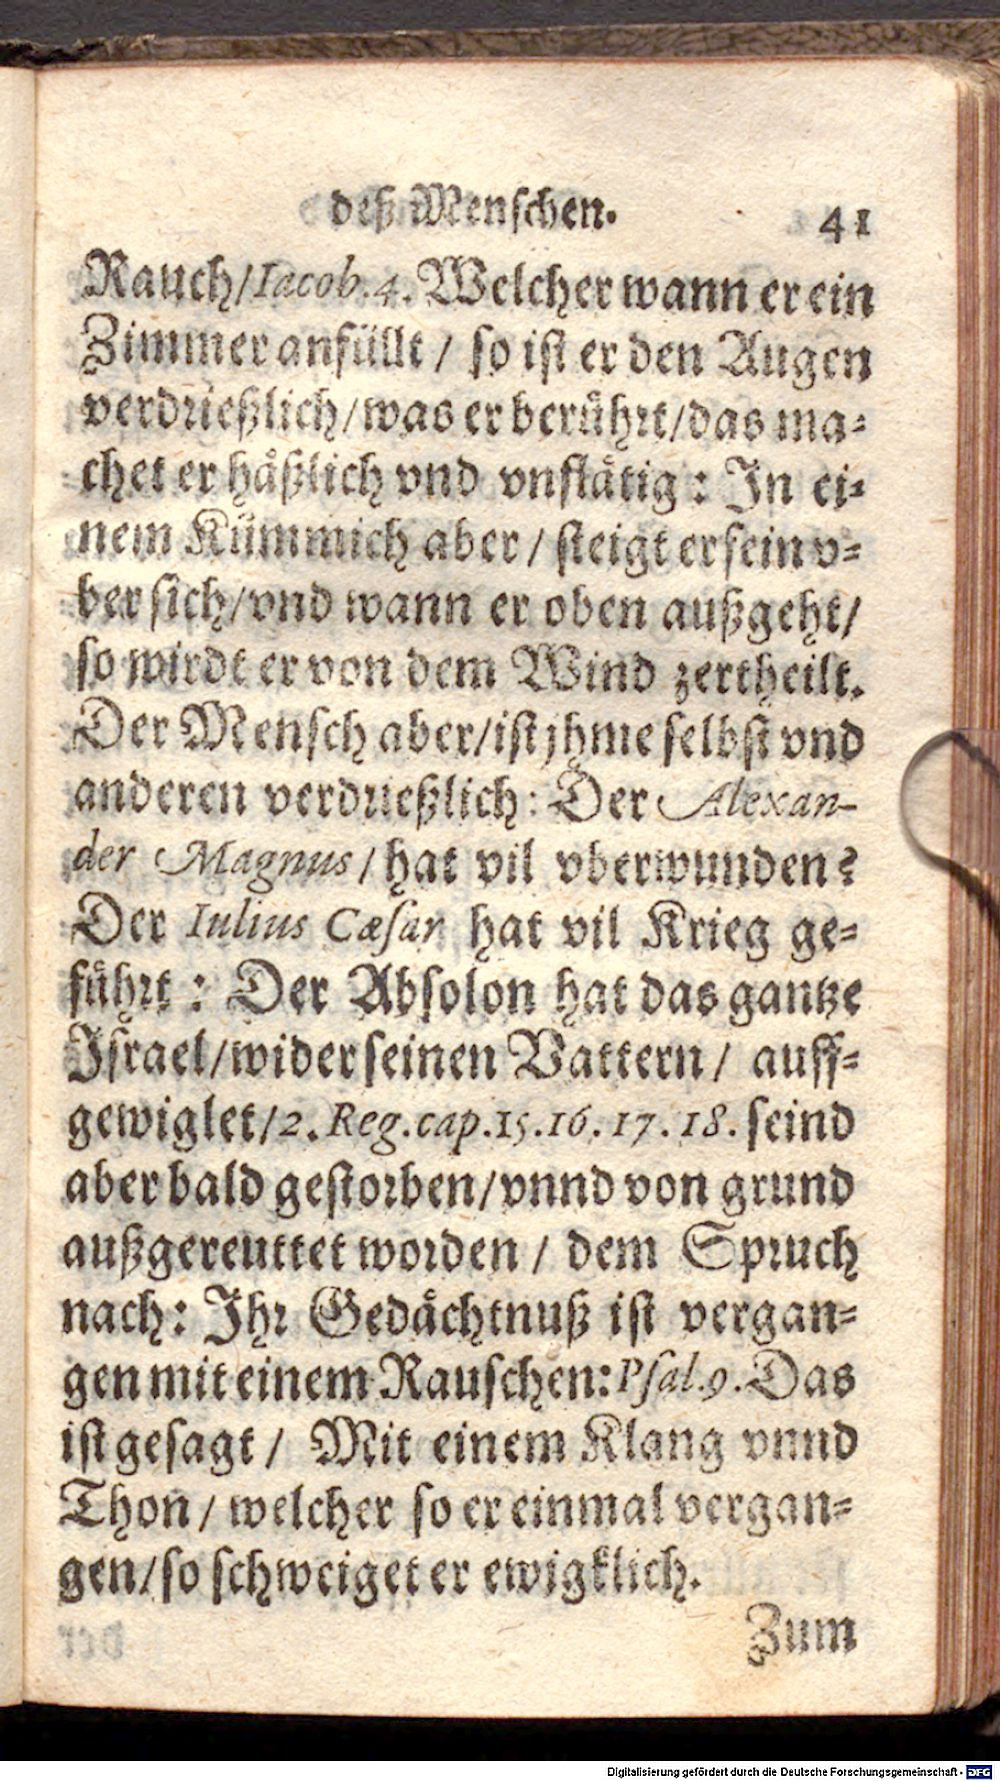 deß Menschen. 41
Rauch/Iacob.4. Welcher wann er ein
Zimmer anfüllt / so ist er den Augen
verdrießlich/was er berührt/das ma-
chet er häßlich vnd vnflätig : In ei-
nem Kümmich aber / steigt er fein v-
ber sich/vnd wann er oben außgeht/
so wirdt er von dem Wind zertheilt.
Der Mensch aber/ist jhme selbst vnd
anderen verdrießlich: Der Alexan-
der Magnus / hat vil vberwunden?
Der Iulius Cæsar hat vil Krieg ge-
führt : Der Absolon hat das gantze
Israel/wider seinen Vattern / auff-
gewiglet/2. Reg.cap.15.16.17.18. seind
aber bald gestorben/vnnd von grund
außgereuttet worden / dem Spruch
nach: Ihr Gedächtnuß ist vergan-
gen mit einem Rauschen: Psal.9. Das
ist gesagt / Mit einem Klang vnnd
Thon / welcher so er einmal vergan-
gen/so schweiget er ewigklich.
Zum
Digitalisierung gefördert durch die Deutsche Forschungsgemeinschaft - DFG